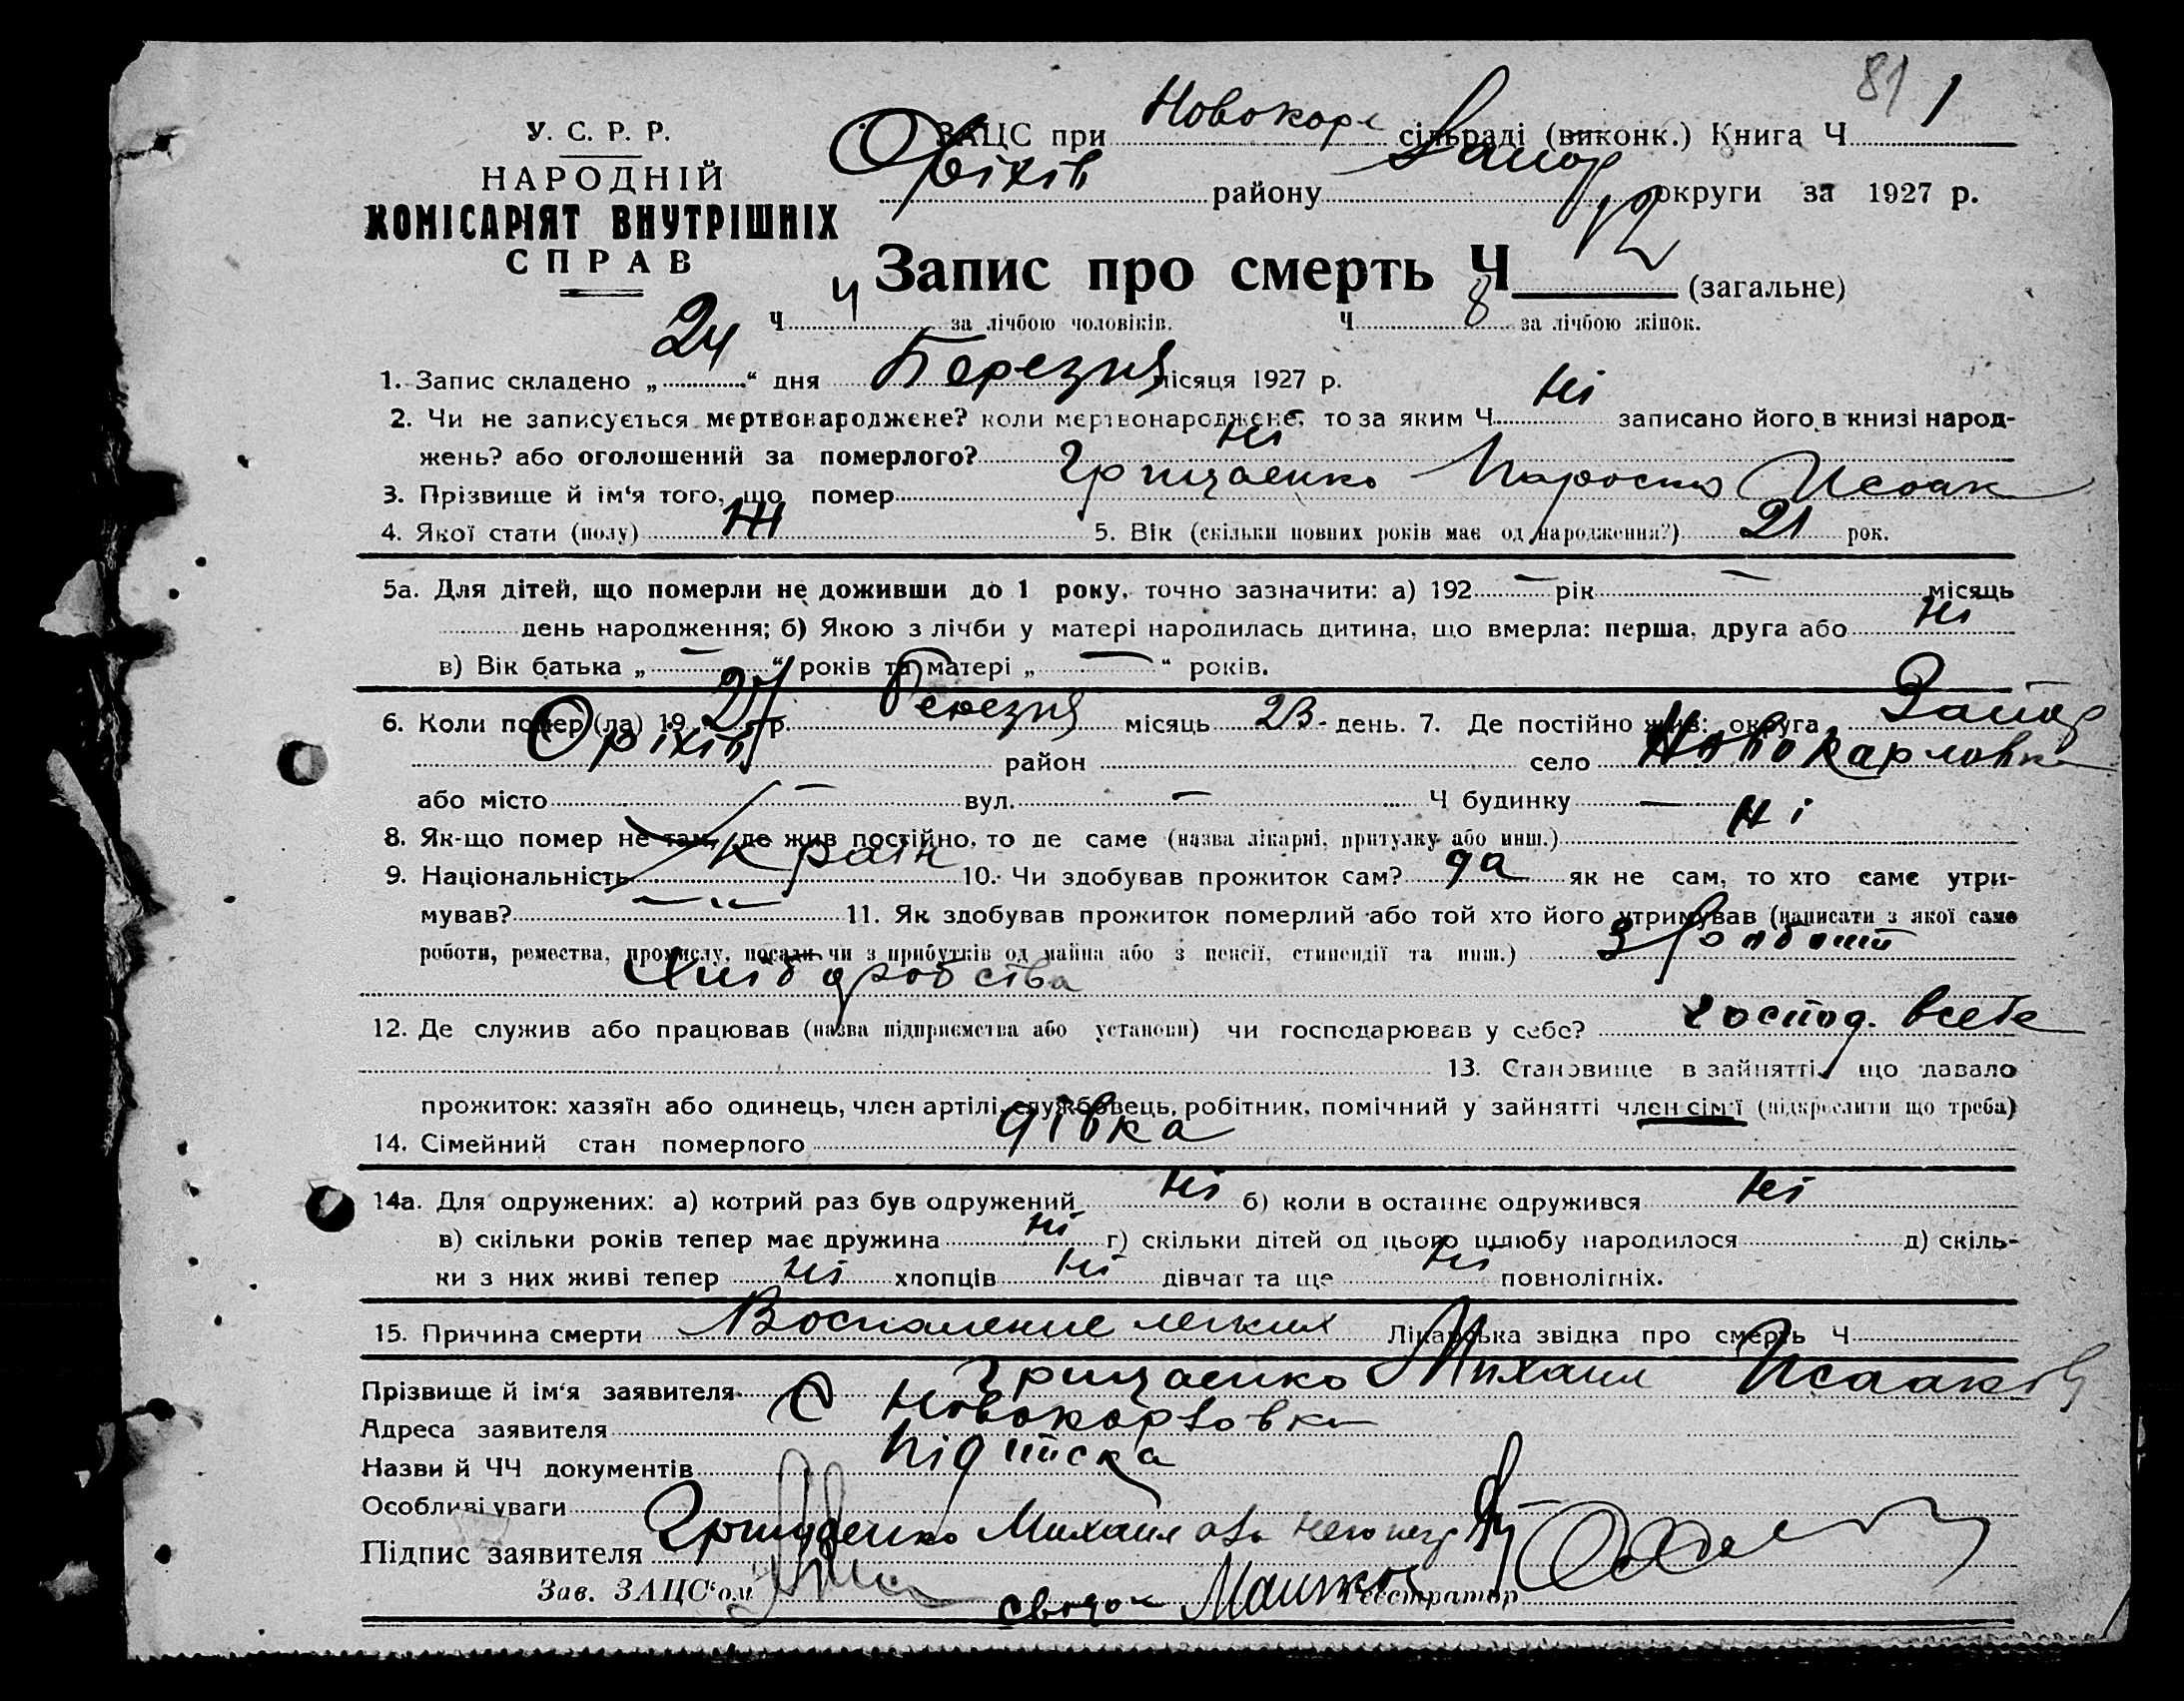 81 1
У. С. Р. Р.
НАРОДНІЙ
КОМІСАРІЯТ ВНУТРІШНІХ
СПРАВ
ЗАЦС при Новокарл сільраді (виконк.) Книга Ч
Оріхів району Запор округи за 1927 р.
Запис про смерть Ч 12 (загальне)
Ч 4 за лічбою чоловіків. Ч 8 за лічбою жінок.
1. Запис складено „ 24 “ дня Березня місяця 1927 р.
2. Чи не записується мертвонароджене? коли мертвонароджене, то за яким Ч Ні записано його в книзі народ-
жень? або оголошений за померлого? Ні
3. Прізвище й ім‘я того, що помер Грищаенко Исаак
4. Якої стати (полу) Ж 5. Вік (скільки повних років має од народження?) 21 рок.
5а. Для дітей, що померли не доживши до 1 року, точно зазначити: а) 192 — рік — місяць
день народження; б) Якою з лічби у матері народилась дитина, що вмерла: перша, друга або Ні
в) Вік батька „ — “ років та матері „ — “ років.
6. Коли помер (ла) 19 27 р. Березня місяць 23 день. 7. Де постійно жив: округа Запор
Оріхів район село Новокарловка
або місто — вул. — Ч будинку —
8. Як-що помер не там, де жив постійно, то де саме (назва лікарні, притулку або инш.) Ні
9. Національність Україн 10. Чи здобував прожиток сам? да як не сам, то хто саме утри-
мував? — 11. Як здобував прожиток померлий або той хто його утримував (написати з якої саме
роботи, ремества, промислу, посади чи з прибутків од майна або з пенсії, стипендії та инш.) З
Хлібороб ства
12. Де служив або працював (назва підприємства або установи) чи господарював у себе? господ. всебе
13. Становище в зайнятті, що давало
прожиток: хазяїн або одинець, член артілі, службовець, робітник, помічний у зайнятті член сім‘ї (підкреслити що треба)
14. Сімейний стан померлого дівка
14а. Для одружених: а) котрий раз був одружений Ні б) коли в останнє одружився Ні
в) скільки років тепер має дружина Ні г) скільки дітей од цього шлюбу народилося д) скіль-
ки з них живі тепер Ні хлопців Ні дівчат та ще Ні повнолітніх.
15. Причина смерти Воспаление легких Лікарська звідка про смерть Ч
Прізвище й ім‘я заявителя Грищаенко Михаил Исааков
Адреса заявителя С Новокарловка
Назви й ЧЧ документів підписка
Особливі уваги
Підпис заявителя Грищаенко Михаил
Зав. ЗАЦС‘ом Реєстратор